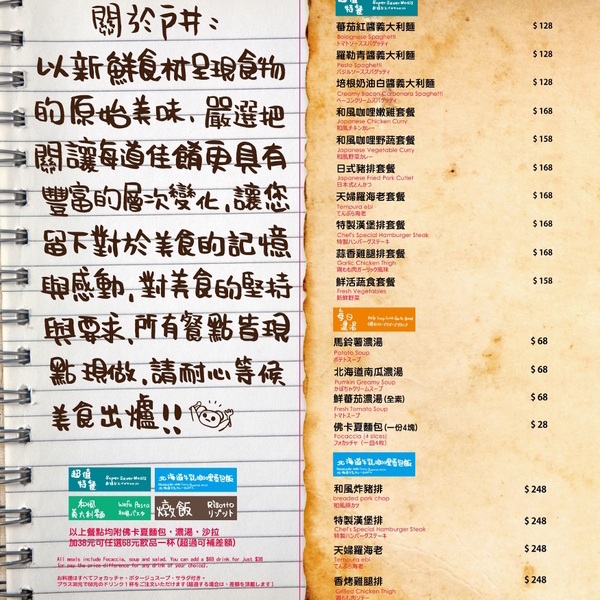 關於戸井：
以新鮮食材呈現食物
的原始美味，嚴選把
關讓每道佳餚更具有
豐富的層次變化，讓您
留下對於美食的記憶
與感動，對美食的堅持
與要求，所有餐點皆現
點現做，請耐心等候
美食出爐！！
超值特餐 Super Saver Meals
北海道牛乳咖哩麵包飯
和風義大利麵 Wafu Pasta 和風パスタ
燉飯 Risotto リゾット
以上餐點均附佛卡夏麵包・濃湯・沙拉
加38元可任選68元飲品一杯(超過可補差額)
All meals include Focaccia, soup and salad. You can add a $68 drink for just $38
(or pay the price difference for any drink of your choice).
お料理はすべてフォカッチャ・ポタージュスープ・サラダ付き・
プラス38元で68元のドリンク１杯をご注文いただけます(超過する場合は、差額を頂戴します)
超值特餐 Super Saver Meals
蕃茄紅醬義大利麵 $128
Bolognese Spaghetti
トマトソーススパゲッティ
羅勒青醬義大利麵 $128
Pesto Spaghetti
バジルソーススパゲッティ
培根奶油白醬義大利麵 $128
Creamy Bacon Carbonara Spaghetti
ベーコンクリームスパゲッティ
和風咖哩嫩雞套餐 $168
Japanese Chicken Curry
和風チキンカレー
和風咖哩野蔬套餐 $158
Japanese Vegetable Curry
和風野菜カレー
日式豬排套餐 $168
Japanese Fried Pork Cutlet
日本式とんかつ
天婦羅海老套餐 $168
Tempura ebi
てんぷら海老
特製漢堡排套餐 $168
Chef's Special Hamburger Steak
特製ハンバーグステーキ
蒜香雞腿排套餐 $168
Garlic Chicken Thigh
鶏もも肉ガーリック風味
鮮活蔬食套餐 $158
Fresh Vegetables
新鮮野菜
每日濃湯
馬鈴薯濃湯 $68
Potato Soup
ポテトスープ
北海道南瓜濃湯 $68
Pumkin Creamy Soup
かぼちゃクリームスープ
鮮蕃茄濃湯(全素) $68
Fresh Tomato Soup
トマトスープ
佛卡夏麵包(一份4塊) $28
Focaccia (4 slices)
フォカッチャ（一皿4枚）
北海道牛乳咖哩麵包飯
和風炸豬排 $248
breaded pork chop
和風豚カツ
特製漢堡排 $248
Chef's Special Hamburger Steak
特製ハンバーグステーキ
天婦羅海老 $248
Tempura ebi
てんぷら海老
香烤雞腿排 $248
Grilled Chicken Thigh
鶏もも肉ロティー